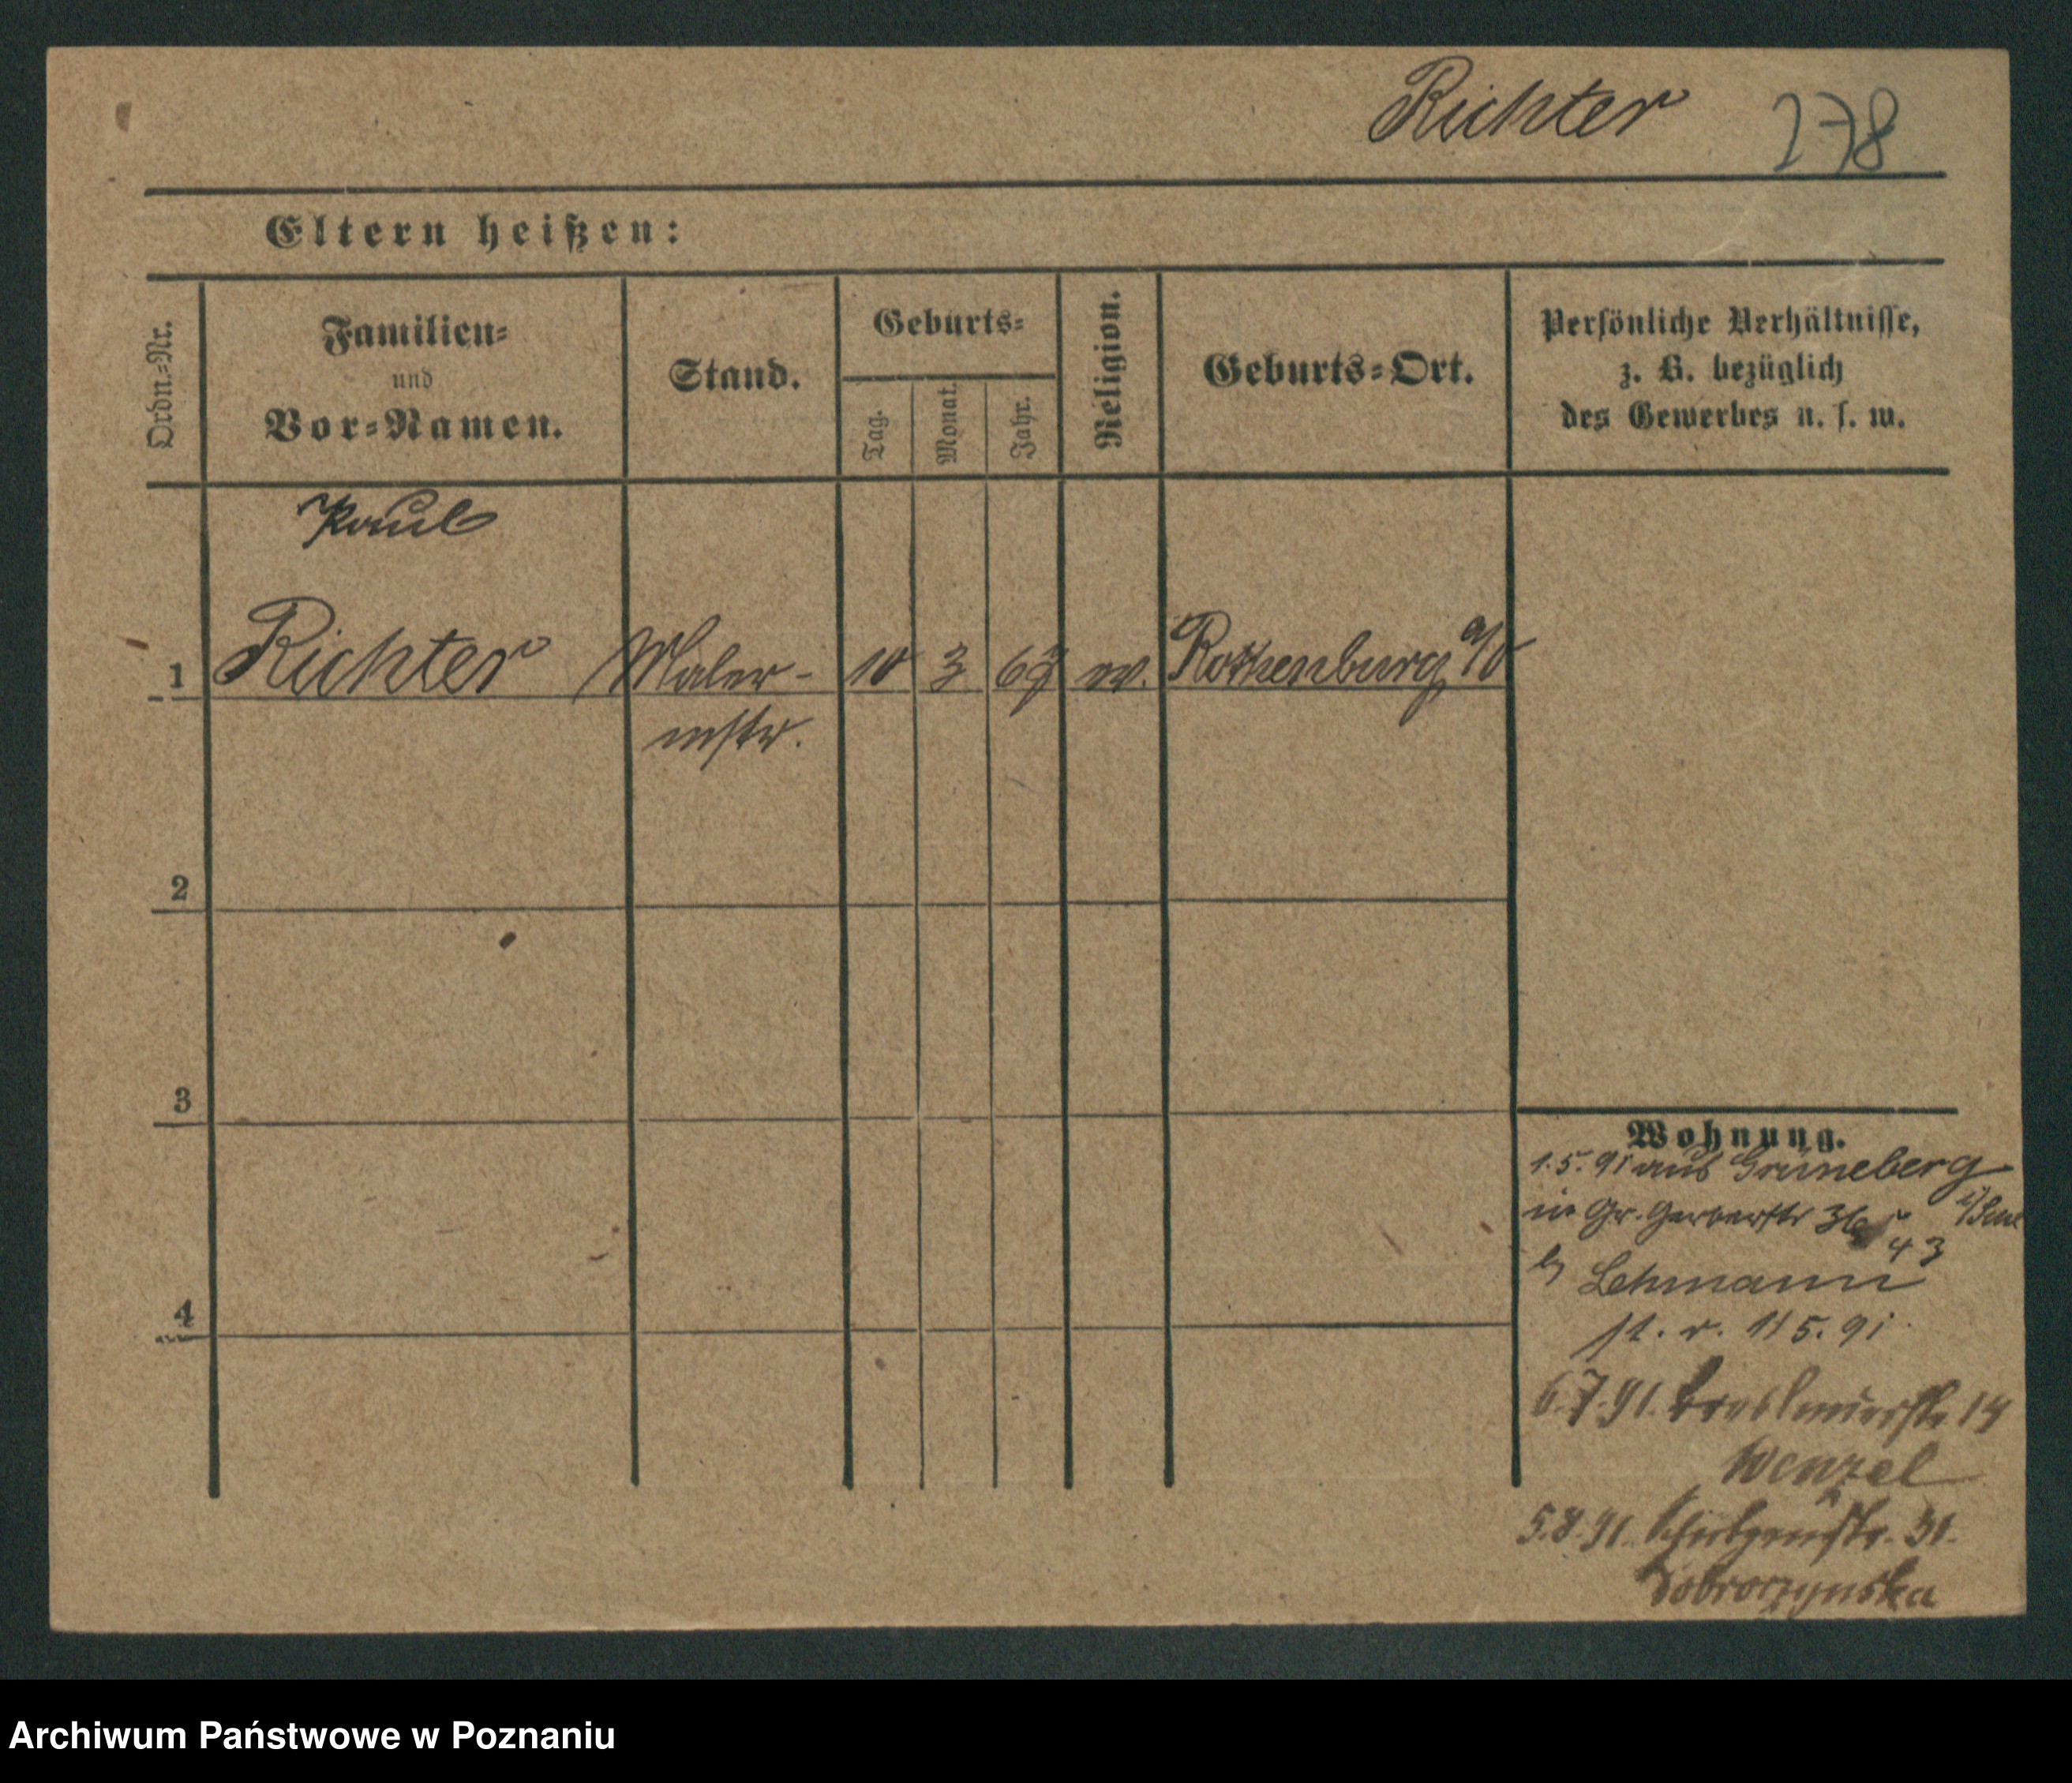 Richter 278
Eltern heißen:
Ordn.-Nr.
Familien-
und
Vor-Namen.
Stand.
Geburts-
Tag.
Monat.
Jahr.
Religion.
Geburts-Ort.
Persönliche Verhältnisse,
z. B. bezüglich
des Gewerbes u. s. w.
Paul
1 Richter Maler- 10 3 67 ev. Rothenburg a/O
mstr.
2
3
4
Wohnung.
1.5.91 aus Grüneberg
in Gr. Gerberstr 36
43
Lehmann
5.91
6.7.91. Breslauerstr 14
Wenzel
5.8.91. Schützenstr. 31.
Dobroczynska
Archiwum Państwowe w Poznaniu